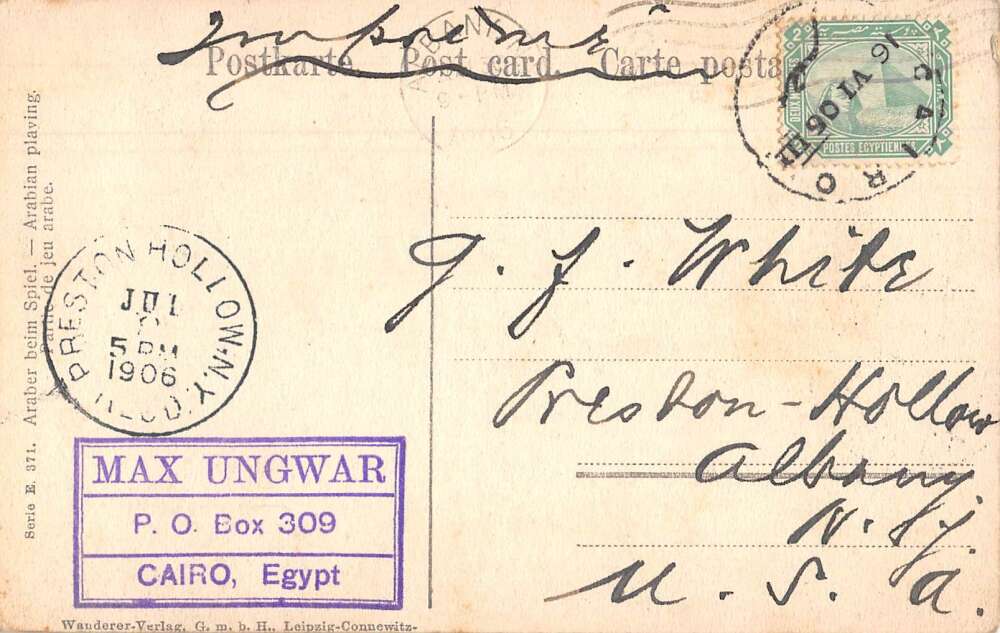 Imprimé
Postkarte. Post card. Carte posta
ALBANY, N.
2
DEUX
POSTES EGYPTIENNES
CAIRO
16 VI 06
Serie E. 371. Araber beim Spiel. — Arabian playing.
Partie de jeu arabe.
G. J. White
Preston-Hollow
Albany
N. Y.
U. S. A.
PRESTON HOLLOW, N.Y.
JUL
5 PM
1906
REC'D.
MAX UNGWAR
P. O. Box 309
CAIRO, Egypt
Wanderer-Verlag, G. m. b. H., Leipzig-Connewitz-